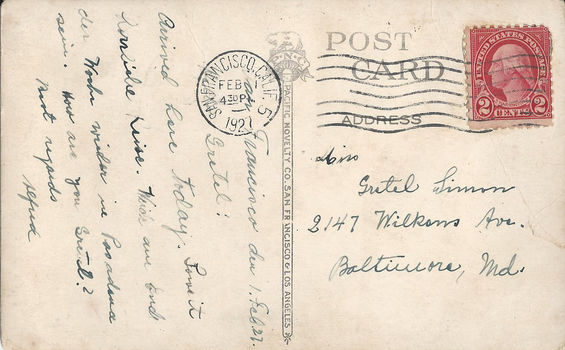 POST
CARD
ADDRESS
UNITED STATES POSTAGE
2 CENTS 2
SAN FRANCISCO, CALIF. 5
FEB 1
4 30 P
1927
PACIFIC NOVELTY CO. SAN FRANCISCO & LOS ANGELES
Miss
Gretel Simon
2147 Wilkens Ave.
Baltimore, Md.
San Francisco den 1. Feb 27.
Gretel!
Arrived here today. Love it
der Woche wieder in Pasadena
sein. How are you Gretel?
Best regards